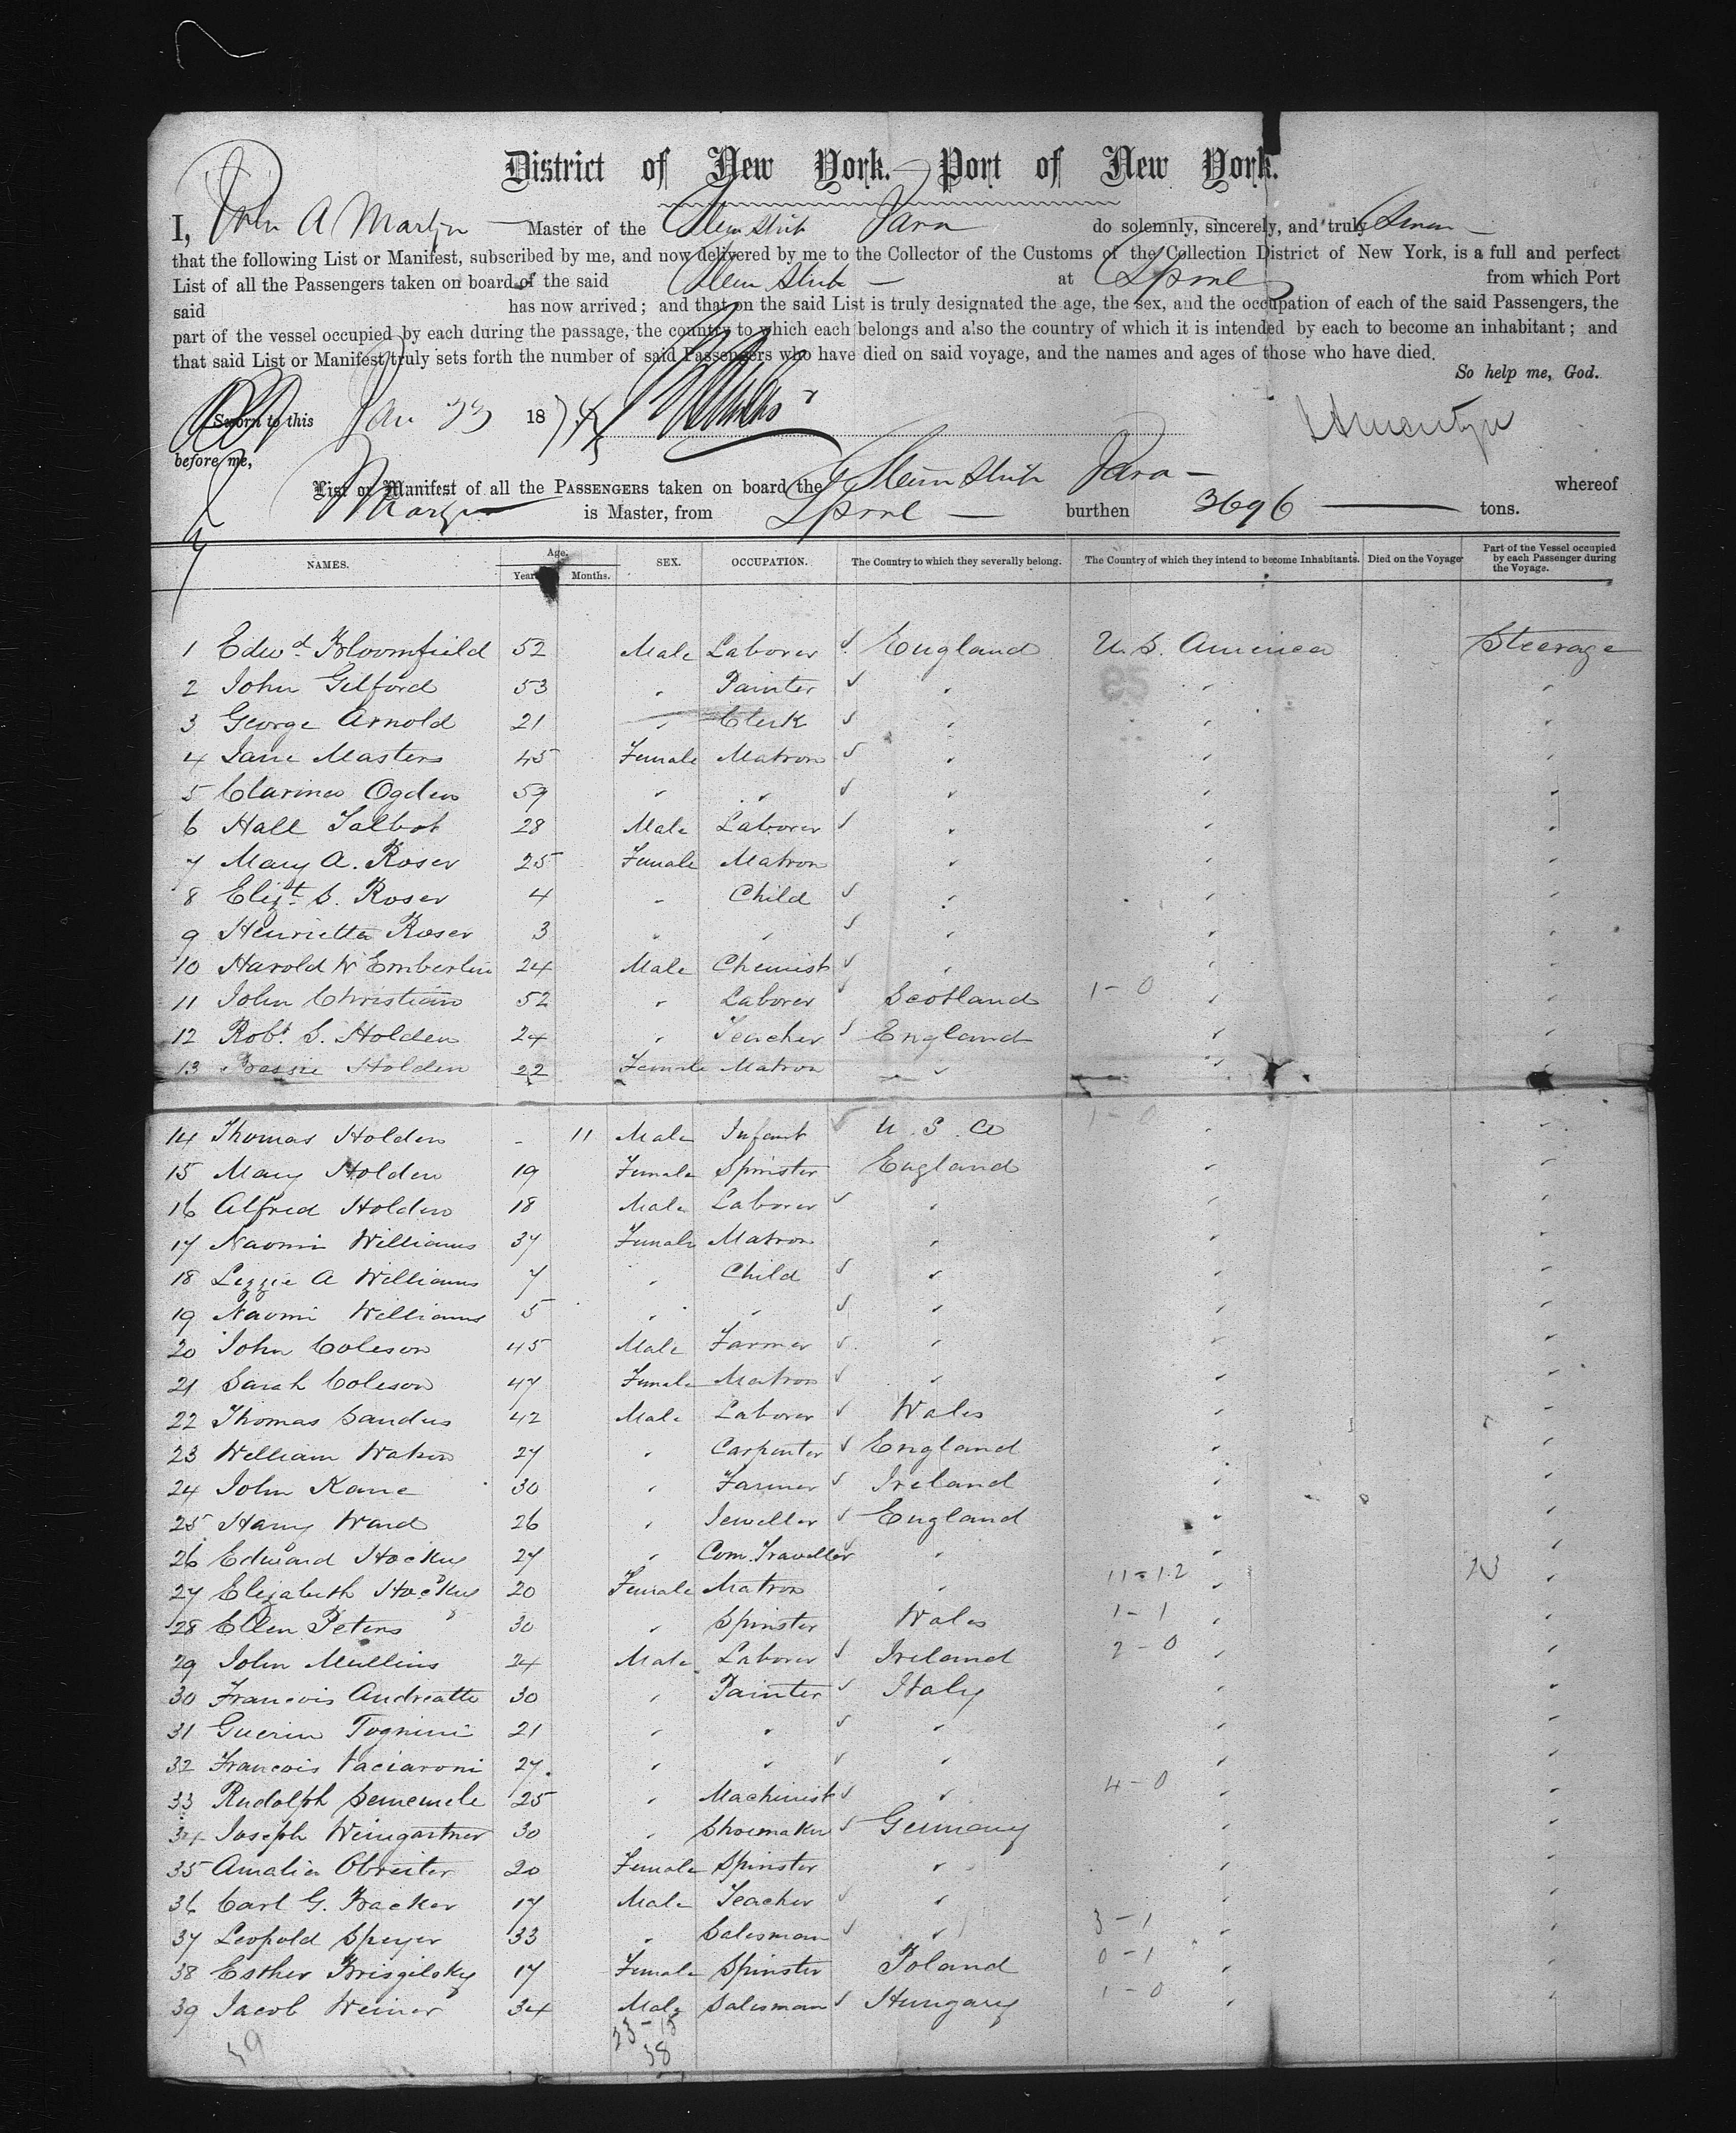 District of New York. Port of New York.
I, John A Martyn Master of the Steam Ship do solemnly, sincerely, and truly Swear
that the following List or Manifest, subscribed by me, and now delivered by me to the Collector of the Customs of the Collection District of New York, is a full and perfect
List of all the Passengers taken on board of the said Steam Ship at Lpool from which Port
said has now arrived; and that on the said List is truly designated the age, the sex, and the occupation of each of the said Passengers, the
part of the vessel occupied by each during the passage, the country to which each belongs and also the country of which it is intended by each to become an inhabitant; and
that said List or Manifest truly sets forth the number of said Passengers who have died on said voyage, and the names and ages of those who have died.
So help me, God.
Sworn to this Jan 23 187
before me,
List or Manifest of all the PASSENGERS taken on board the Steam Ship whereof
Martyn is Master, from Lpool burthen 3696 tons.
NAMES. Age. Years. Months. SEX. OCCUPATION. The Country to which they severally belong. The Country of which they intend to become Inhabitants. Died on the Voyage Part of the Vessel occupied by each Passenger during the Voyage.
1 Edwd Bloomfield 52 Male Laborer England U. S. America Steerage
2 John Gilford 53 " Painter " " "
3 George Arnold 21 " Clerk " " "
4 Jane Masters 45 Female Matron " " "
5 Ogden 59 " " " " "
6 Hall Talbot 28 Male Laborer " " "
7 Mary A. Roser 25 Female Matron " " "
8 Elizt S. Roser 4 " Child " " "
9 Henrietta Roser 3 " " " " "
10 Harold W Emberlin 24 Male Chemist " " "
11 John Christian 52 " Laborer Scotland 1-0 " "
12 Robt S. Holden 24 " Teacher England " "
13 Bessie Holden 22 Female Matron " " "
14 Thomas Holden - 11 Male Infant U. S. A 1-0 " "
15 Mary Holden 19 Female Spinster England " "
16 Alfred Holden 18 Male Laborer " " "
17 Naomi Williams 37 Female Matron " " "
18 Lizzie A Williams 7 " Child " " "
19 Naomi Williams 5 " " " " "
20 John Coleson 45 Male Farmer " " "
21 Sarah Coleson 47 Female Matron " " "
22 Thomas Sandus 42 Male Laborer Wales " "
23 William 27 " Carpenter England " "
24 John Kane 30 " Farmer Ireland " "
25 Harry Ward 26 " Jeweller England " "
26 Edward 27 " Com. Traveller " " "
27 Elizabeth 20 Female Matron " 11-12 " "
28 Ellen Peters 30 " Spinster Wales 1-1 " "
29 John Mullins 24 Male Laborer Ireland 2-0 " "
30 Francois Andreatte 30 " Painter Italy " "
31 Guerin Tognini 21 " " " " "
32 Francois Vaciaroni 27 " " " " "
33 Rudolph 25 " Machinist " 4-0 " "
34 Joseph Weingartner 30 " Shoemaker Germany " "
35 Amalia Obreiter 20 Female Spinster " " "
36 Carl G. Backer 17 Male Teacher " " "
37 Leopold Speyer 33 " Salesman " 3-1 " "
38 Esther 17 Female Spinster Poland 0-1 " "
39 Jacob Weiner 34 Male Salesman Hungary 1-0 " "
39 23-15
38